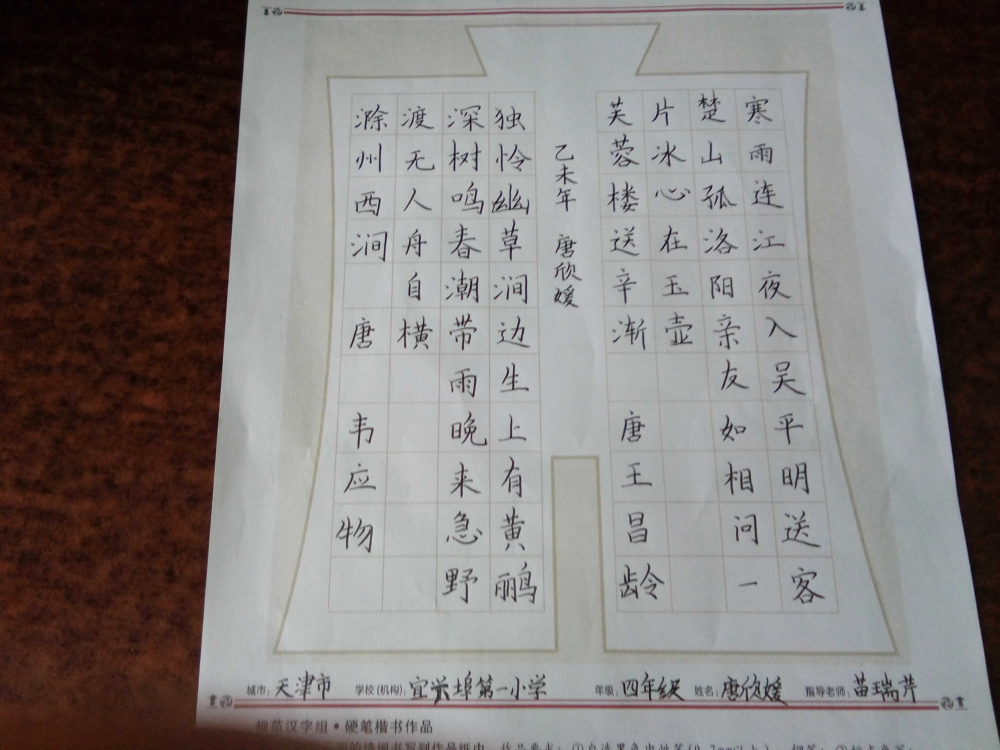 寒雨连江夜入吴平明送客
楚山孤洛阳亲友如相问一
片冰心在玉壶
芙蓉楼送辛渐 唐王昌龄
乙未年 唐欣媛
独怜幽草涧边生上有黄鹂
深树鸣春潮带雨晚来急野
渡无人舟自横
滁州西涧 唐 韦应物
城市：天津市 学校(机构)：宜兴埠第一小学 年级：四年级 姓名：唐欣媛 指导老师：苗瑞芹
规范汉字组·硬笔楷书作品